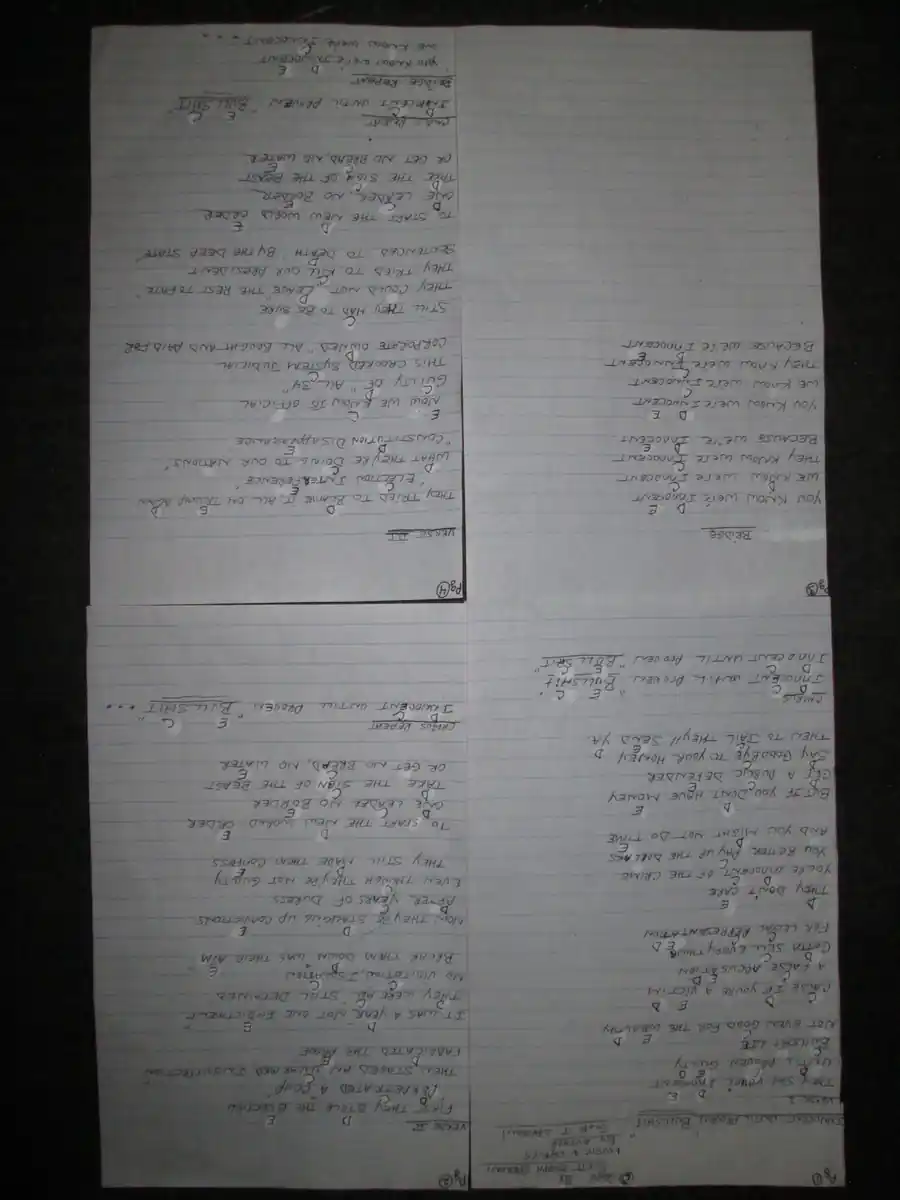 Pg ①
"INNOCENT UNTIL PROVEN BULLSHIT"
MUSIC & LYRICS
VERSE I
D E
THEY SAY YOUR INNOCENT
UNTIL PROVEN GUILTY
BULLSHIT LIE
NOT EVEN GOOD FOR THE WEALTHY
CAUSE IF YOU'RE A VICTIM
A FALSE ACCUSATION
GOTTA SELL EVERYTHING
FOR LEGAL REPRESENTATION
D E
THEY DON'T CARE
YOU'RE INNOCENT OF THE CRIME
YOU BETTER PAY UP THE DOLLARS
AND YOU MIGHT NOT DO TIME
D E
BUT IF YOU DON'T HAVE MONEY
GET A PUBLIC DEFENDER
SAY GOODBYE TO YOUR HONEY
THEN TO JAIL THEY'LL SEND YA
CHORUS
D C E C
INNOCENT UNTIL PROVEN "BULLSHIT"
D C E C
INNOCENT UNTIL PROVEN "BULLSHIT"
Pg ②
VERSE II
D E
FIRST THEY STOLE THE ELECTION
PERPETRATED A "COUP"
THEN STAGED AN UNARMED INSURRECTION
FABRICATED THE MODE
D E
IT WAS A YEAR NOT ONE INDICTMENT
THEY WERE ALL "STILL DETAINED"
NO VISITATION, ISOLATION
BREAK THEM DOWN WAS THEIR AIM
D E
NOW THEY'RE STRINGING UP CONVICTIONS
AFTER YEARS OF DURESS
EVEN THOUGH THEY'RE NOT GUILTY
THEY STILL MADE THEM CONFESS
D E
TO START THE NEW WORLD ORDER
ONE LEADER NO BORDER
TAKE THE SIGN OF THE BEAST
OR GET NO BREAD, NO WATER
CHORUS REPEAT
D C E C
INNOCENT UNTILL PROVEN "BULLSHIT" ...
Pg ③
BRIDGE
D E
YOU KNOW WE'RE INNOCENT
WE KNOW WERE INNOCENT
THEY KNOW WERE INNOCENT
BECAUSE WE'RE INNOCENT
D E
YOU KNOW WERE INNOCENT
WE KNOW WERE INNOCENT
THEY KNOW WERE INNOCENT
BECAUSE WE'RE INNOCENT
Pg ④
VERSE III
THEY TRIED TO BLAME IT ALL ON TRUMP
"ELECTION INTERFERENCE"
WHAT THEY'RE DOING TO OUR NATIONS
"CONSTITUTION DISAPPEARANCE
E C
NOW WE KNOW ITS OFFICIAL
GUILTY OF "ALL 34"
THIS CROOKED SYSTEM JUDICIAL
CORPORATE OWNED "ALL BOUGHT AND PAID FOR
STILL THEY HAD TO BE SURE
THEY COULD NOT "LEAVE" THE REST TO FATE
THEY TRIED TO KILL OUR PRESIDENT
SENTENCED TO DEATH "BY THE DEEP STATE"
D E
TO START THE NEW WORLD ORDER
ONE LEADER, NO BORDER
TAKE THE SIGN OF THE BEAST
OR GET NO BREAD, NO WATER
CHORUS REPEAT
D C E C
INNOCENT UNTIL PROVEN "BULLSHIT"
BRIDGE REPEAT
D E
YOU KNOW WE'RE INNOCENT
WE KNOW WERE INNOCENT ....